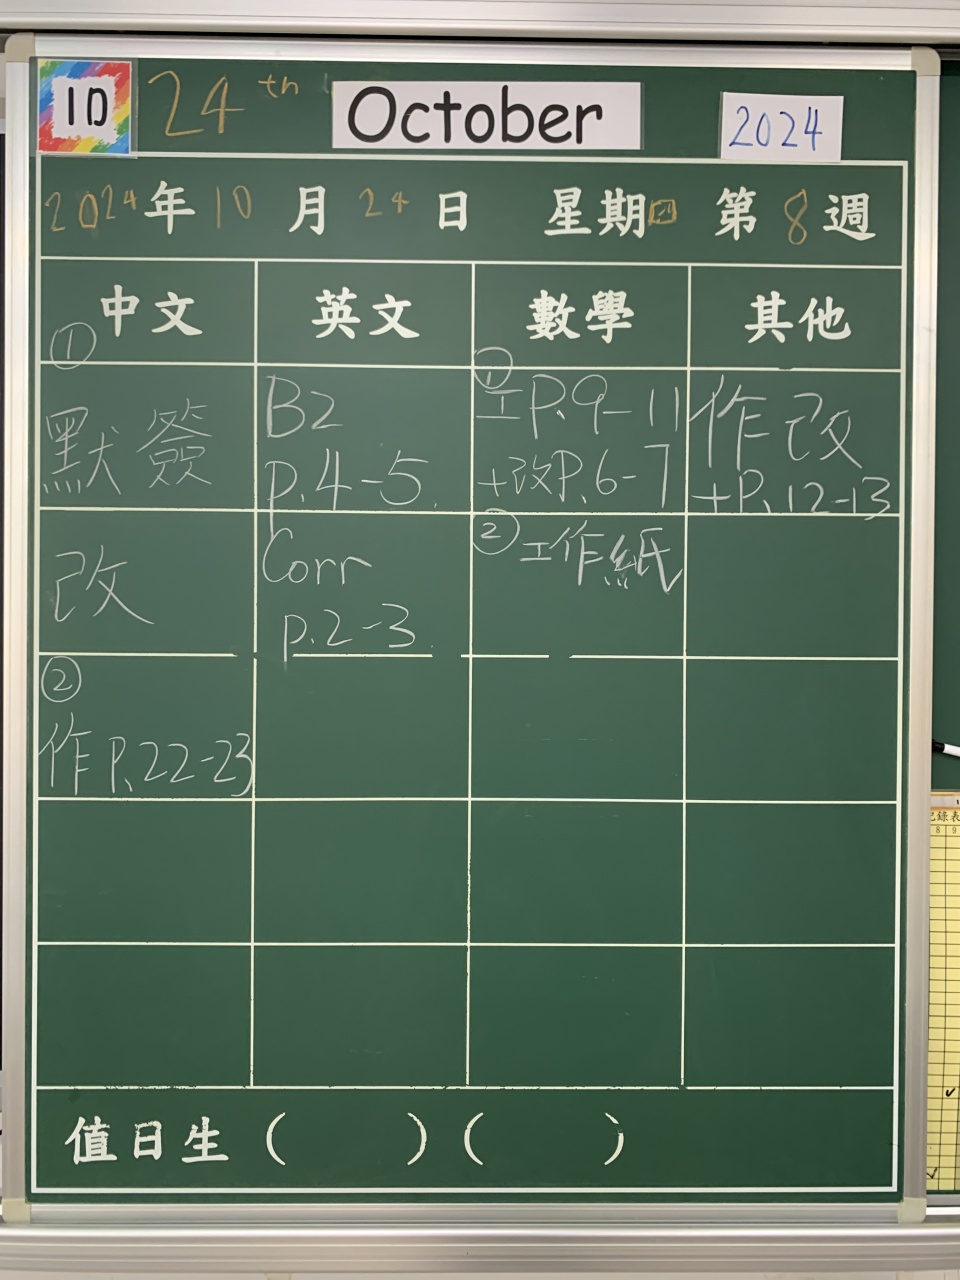 1D 24th October 2024
2024年10月24日 星期四 第8週
中文 英文 數學 其他
①
默簽
改
②
作P.22-23
B2
p.4-5
Corr
p.2-3
①
工P.9-11
+改P.6-7
②工作紙
作改
+P.12-13
值日生( )( )
記錄表
8 9